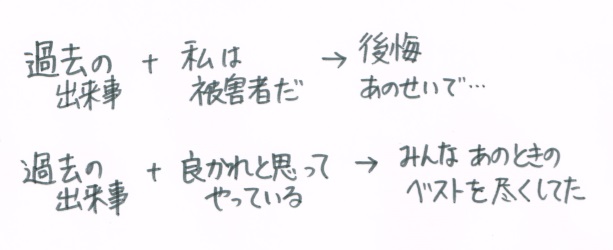 過去の出来事 + 私は被害者だ → 後悔 あのせいで…
過去の出来事 + 良かれと思ってやっている → みんな あのときの ベストを尽くしてた